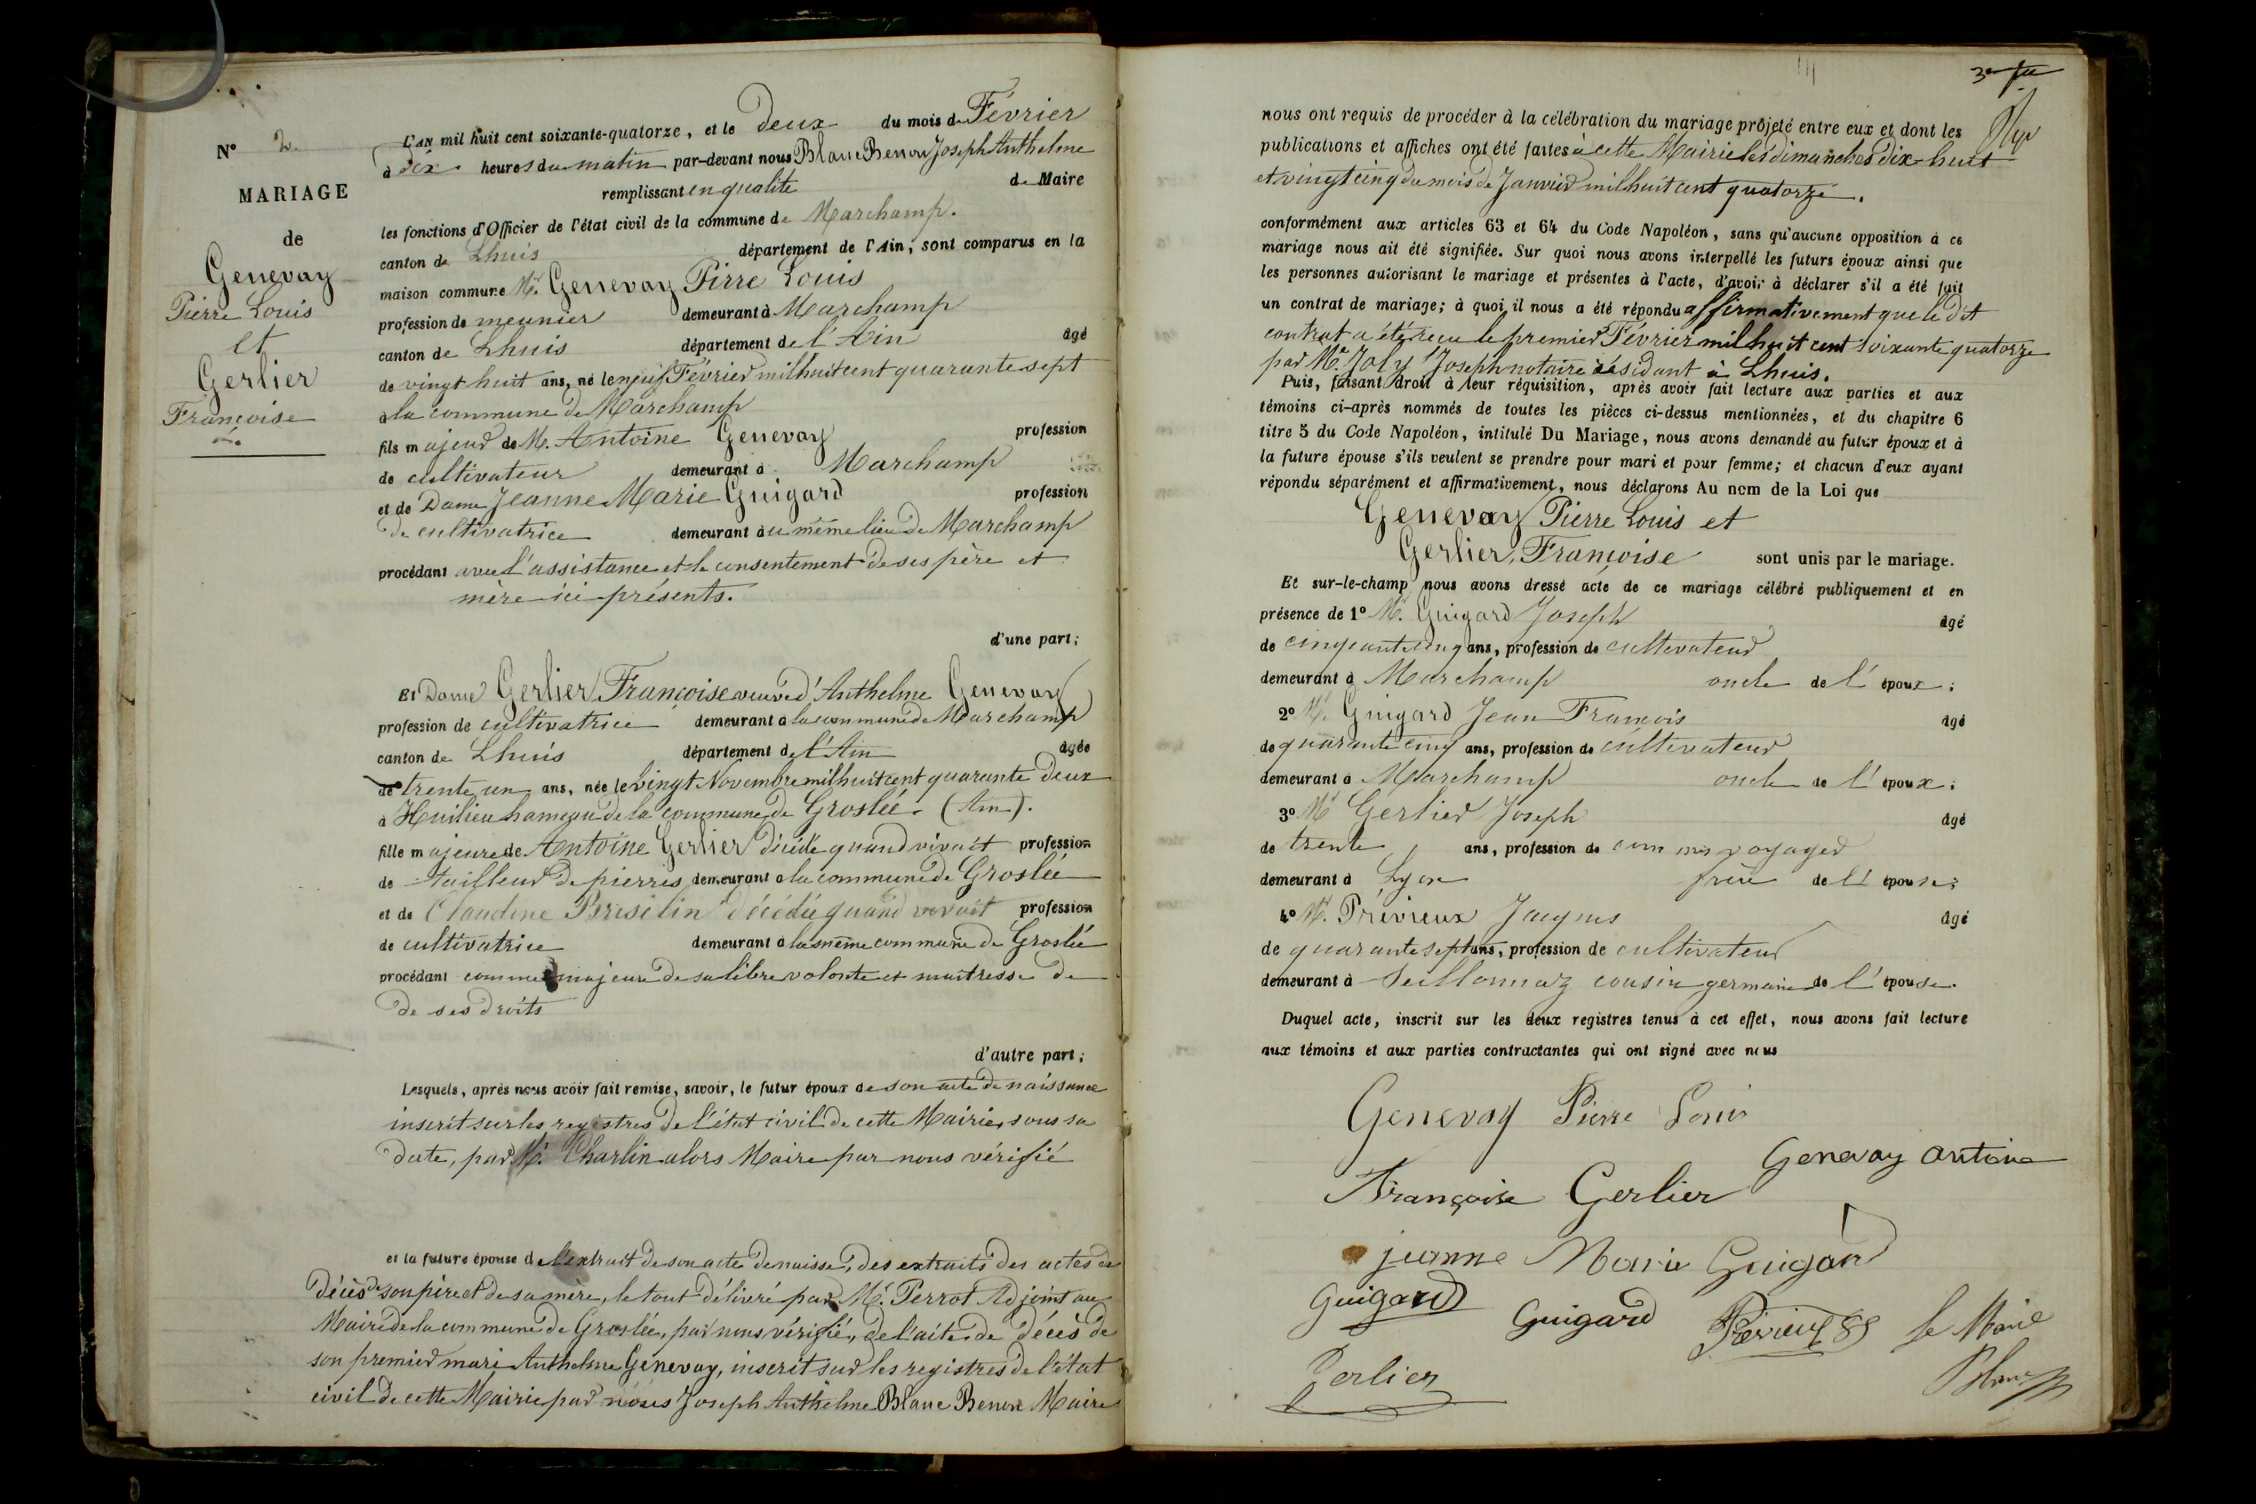 N° 2.
MARIAGE
de
Genevay
Pierre Louis
et
Gerlier
Françoise
L'an mil huit cent soixante-quatorze, et le deux du mois de Février
à dix heures du matin par-devant nous Blanc Benon Joseph Anthelme
remplissant en qualité de Maire
les fonctions d'Officier de l'état civil de la commune de Marchamp.
canton de Lhuis département de l'Ain, sont comparus en la
maison commune Mr. Genevay Pirre Louis
profession de meunier demeurant à Marchamp
canton de Lhuis département de l'Ain âgé
de vingt huit ans, né le neuf Février mil huit cent quarante sept
à la commune de Marchamp
fils majeur de M. Antoine Genevay profession
de cultivateur demeurant à Marchamp
et de Dame Jeanne Marie Guigard profession
de cultivatrice demeurant au même lieu de Marchamp
procédant avec l'assistance et le consentement de ses père et
mère ici présents.
d'une part;
Et Dame Gerlier Françoise veuve d'Anthelme Genevay
profession de cultivatrice demeurant à la commune de Marchamp
canton de Lhuis département de l'Ain âgée
de trente un ans, née le vingt Novembre mil huit cent quarante deux
à Huilieu hameau de la commune de Groslée. (Ain).
fille majeure de Antoine Gerlier décédé quand vivait profession
de tailleur de pierres demeurant à la commune de Groslée
et de Claudine décédée quand vivait profession
de cultivatrice demeurant à la même commune de Groslée
procédant comme majeure de sa libre volonté et maitresse de
de ses droits
d'autre part;
Lesquels, après nous avoir fait remise, savoir, le futur époux de son acte de naissance
inscrit sur les registres de l'état civil de cette Mairie, sous sa
date, par M. Charlin alors Maire par nous vérifié
et la future épouse de l'extrait de son acte de naisse, des extraits des actes de
décès de son père et de sa mère, le tout délivré par Mr. Perrot Adjoint au
Maire de la commune de Groslée, par nous vérifié, de l'acte de décès de
son premier mari Anthelme Genevay, inscrit sur les registres de l'état
civil de cette Mairie par nous Joseph Anthelme Blanc Benon Maire
nous ont requis de procéder à la célébration du mariage projeté entre eux et dont les
publications et affiches ont été faites à cette Mairie les dimanches dix-huit
et vingt cinq du mois de Janvier mil huit cent quatorze.
conformément aux articles 63 et 64 du Code Napoléon, sans qu'aucune opposition à ce
mariage nous ait été signifiée. Sur quoi nous avons interpellé les futurs époux ainsi que
les personnes autorisant le mariage et présentes à l'acte, d'avoir à déclarer s'il a été fait
un contrat de mariage; à quoi il nous a été répondu affirmativement que le dit
contrat a été reçu le premier Février mil huit cent soixante quatorze
par Me. Joly Joseph notaire résidant à Lhuis.
Puis, faisant droit à leur réquisition, après avoir fait lecture aux parties et aux
témoins ci-après nommés de toutes les pièces ci-dessus mentionnées, et du chapitre 6
titre 5 du Code Napoléon, intitulé Du Mariage, nous avons demandé au futur époux et à
la future épouse s'ils veulent se prendre pour mari et pour femme; et chacun d'eux ayant
répondu séparément et affirmativement, nous déclarons Au nom de la Loi que
Genevay Pierre Louis et
Gerlier, Françoise sont unis par le mariage.
Et sur-le-champ nous avons dressé acte de ce mariage célébré publiquement et en
présence de 1° M. Guigard Joseph âgé
de cinquante cinq ans, profession de cultivateur
demeurant à Marchamp oncle de l'époux;
2° M. Guigard Jean François âgé
de quarante cinq ans, profession de cultivateur
demeurant à Marchamp oncle de l'époux;
3° Mr Gerlier Joseph âgé
de trente ans, profession de com mis voyager
demeurant à Lyon frère de l'épouse;
4° Mr. Prévieux Jacques âgé
de quarante sept ans, profession de cultivateur
demeurant à Seillonnaz cousin germain de l'épouse.
Duquel acte, inscrit sur les deux registres tenus à cet effet, nous avons fait lecture
aux témoins et aux parties contractantes qui ont signé avec nous
Genevay Pierre Louis
Genevay Antoine
Françoise Gerlier
jeanne Marie Guigard
Guigard Guigard Prévieux Le Maire
Gerlier Blanc